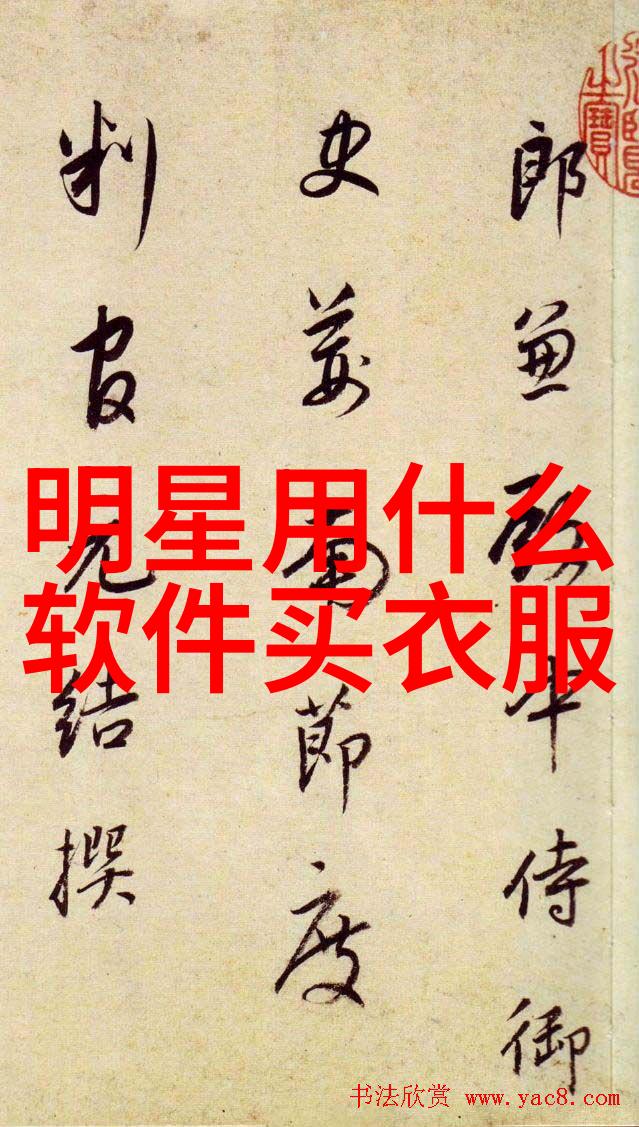 明星用什么
软件买衣服
郎兼殿中侍御
史荊南節度
判官元結撰
书法欣赏 www.yac8.com